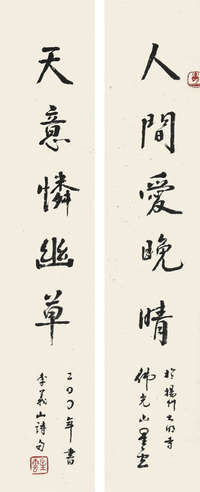 天意憐幽草
二〇〇一年書
李義山詩句
人間愛晚晴
於揚州大明寺
佛光山星雲